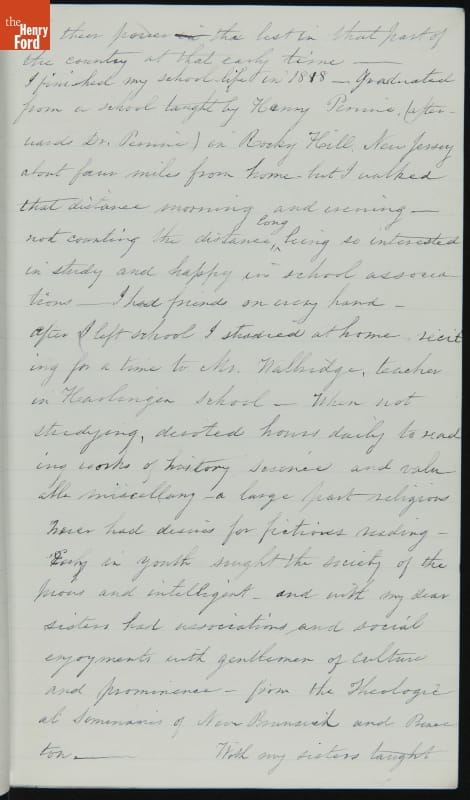 the
Henry
Ford
their power in the best in that part of
the country at that early time —
I finished my school life in 1818 — Graduated
from a school taught by Henry Perrine, (after-
wards Dr. Perrine) in Rocky Hill, New Jersey
about four miles from home - but I walked
that distance morning and evening —
long
not counting the distance, being so interested
in study and happy in school associa
tions — I had friends on every hand —
After I left school I studied at home recit
ing for a time to Mr. Walbridge, teacher
in Harlingen School — When not
studying, devoted hours daily to read
ing works of history science and valu
able miscellany — a large part religious
Never had desires for fictious reading —
Early in youth sought the society of the
pious and intelligent — and with my dear
sisters had associations and social
enjoyments with gentlemen of culture
and prominence — from the Theologic
al Seminaries of New Brunswick and Prince
ton — With my sisters taught